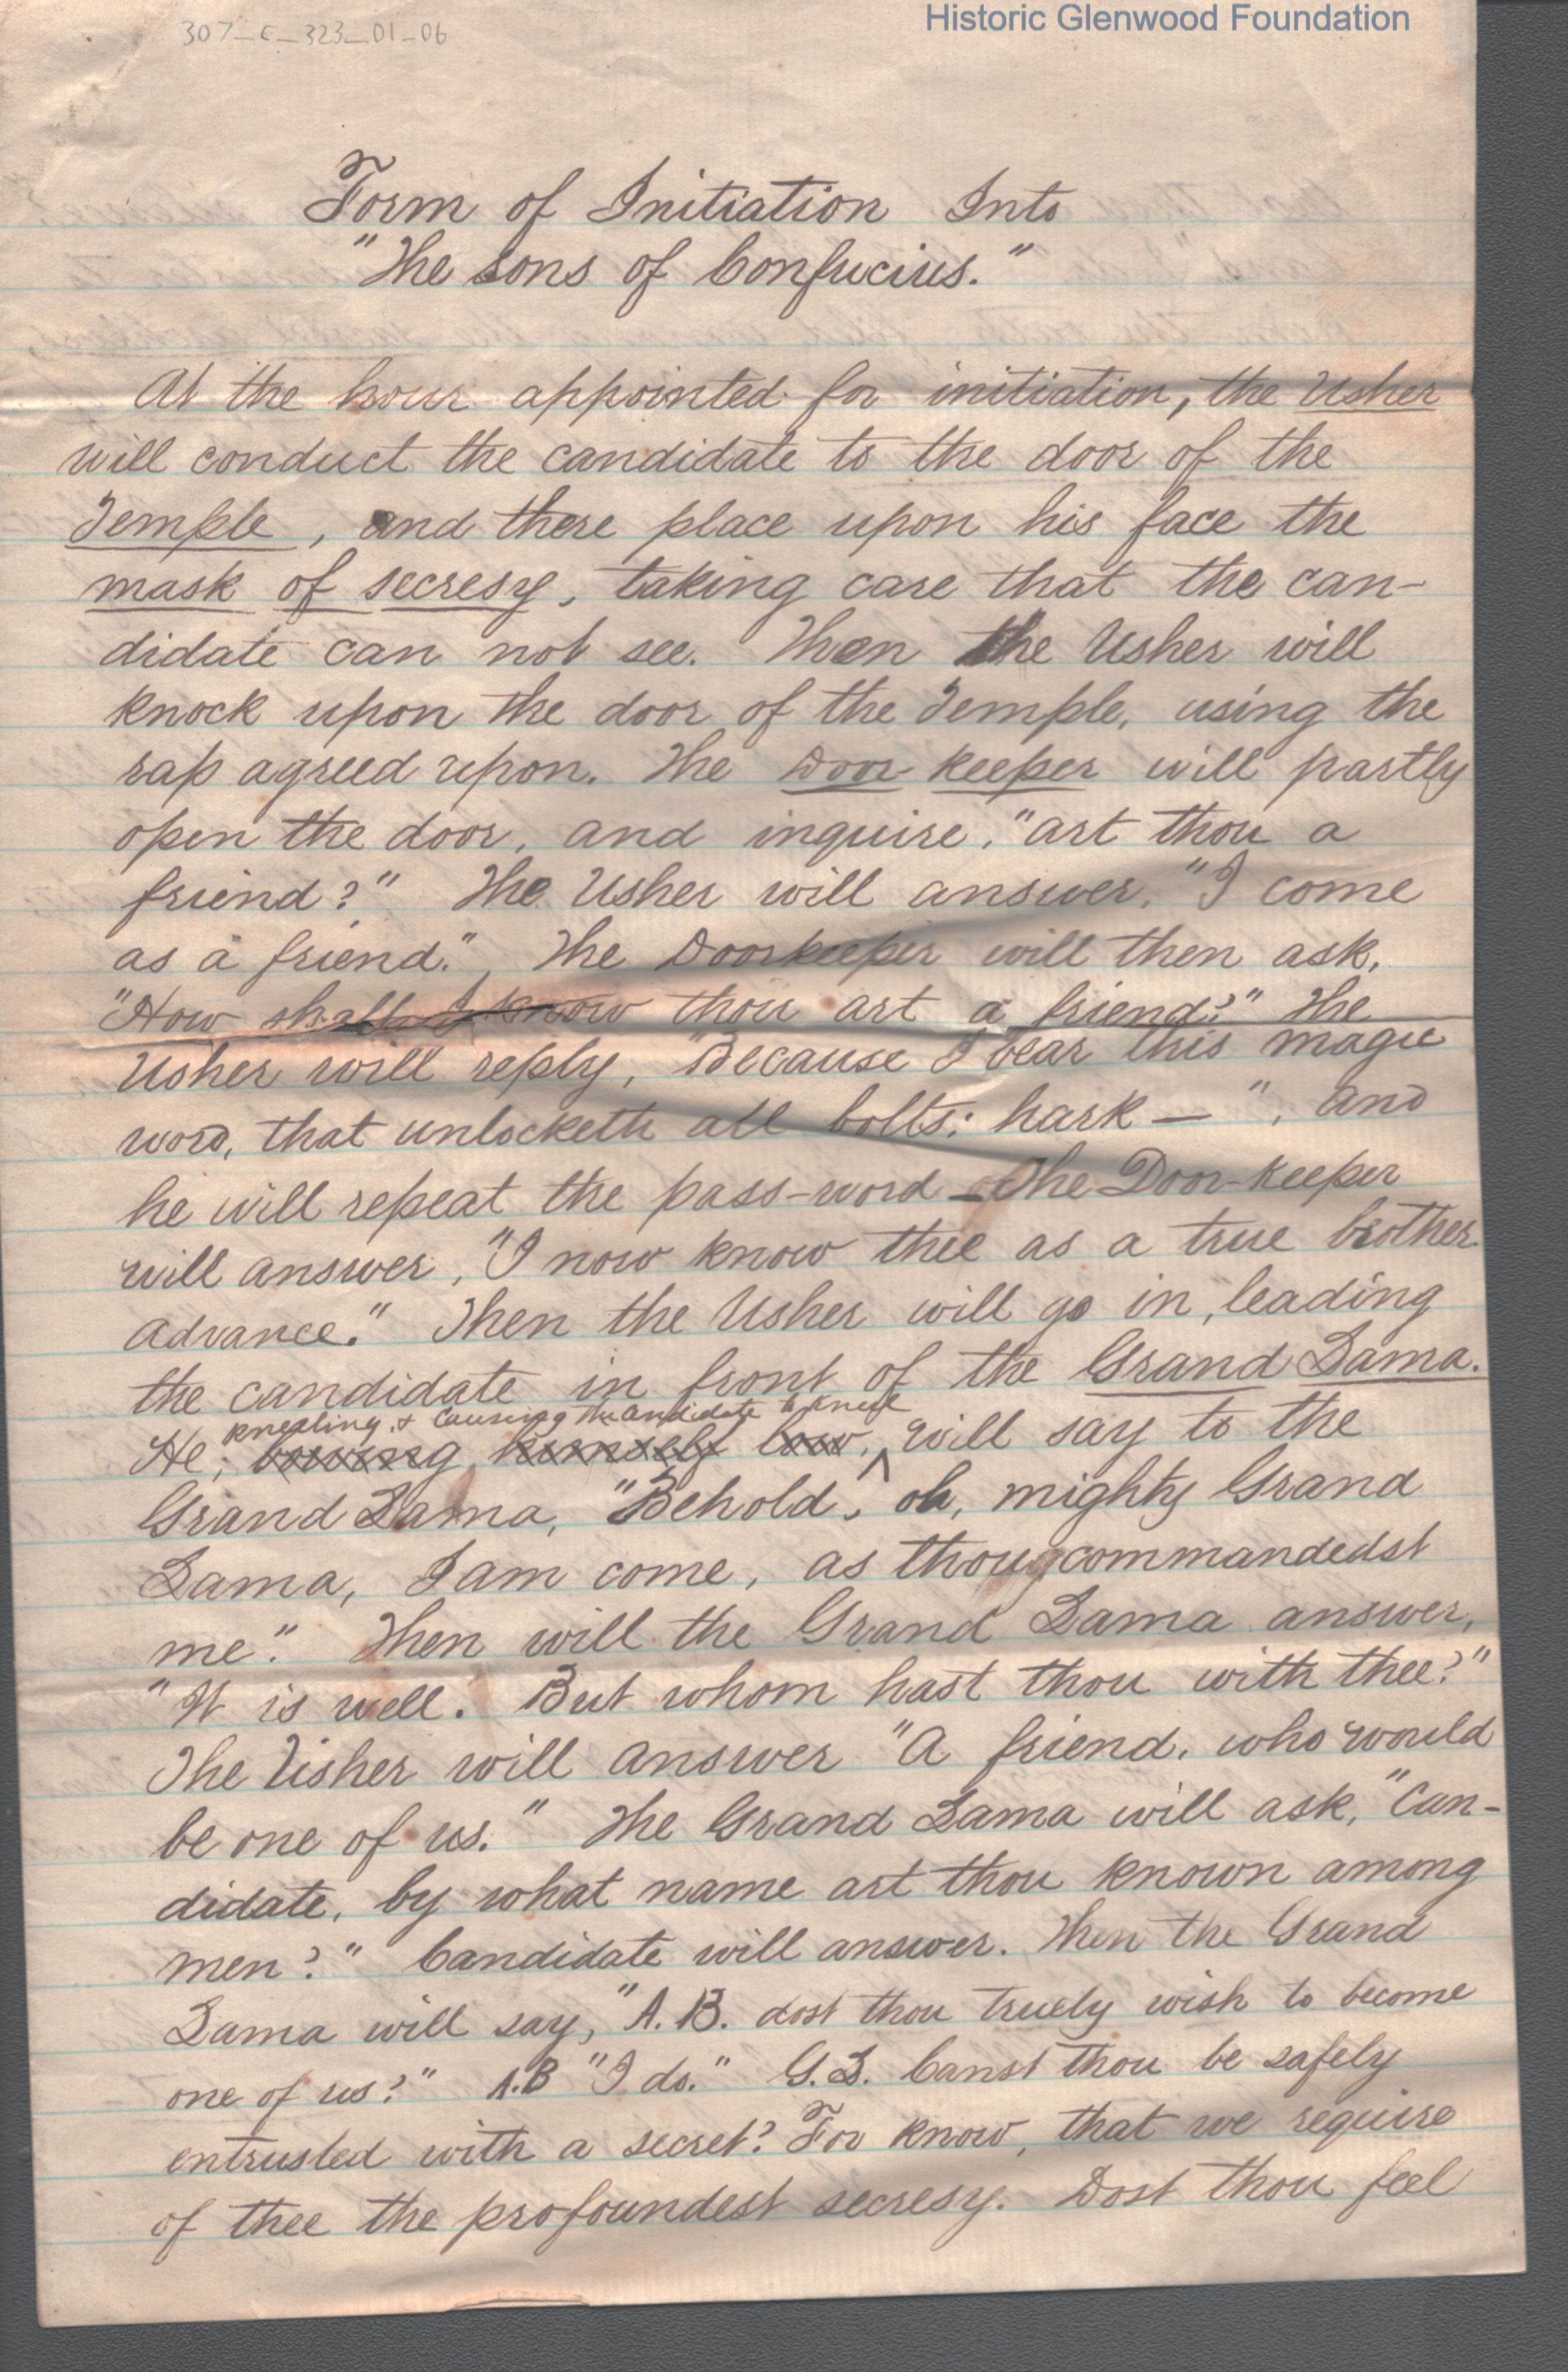 307_C_323_01_06
Historic Glenwood Foundation
Form of Initiation Into
"The Sons of Confucius."
At the hour appointed for initiation, the Usher
will conduct the candidate to the door of the
Temple, and there place upon his face the
mask of secresy, taking care that the can-
didate can not see. Then the Usher will
knock upon the door of the Temple, using the
rap agreed upon. The Door keeper will partly
open the door, and inquire, "art thou a
friend?" The Usher will answer, "I come
as a friend." The Doorkeeper will then ask,
"How shall I know thou art a friend?" The
Usher will reply, "Because I bear this magic
word, that unlocketh all bolts: hark — ", and
he will repeat the pass-word – The Door-keeper
will answer, "I now know thee as a true brother
advance." Then the Usher will go in, leading
the candidate in front of the Grand Lama.
kneeling & causing the candidate to kneel
He, bowing himself low, ^ will say to the
Grand Lama, "Behold, oh, mighty Grand
Lama, I am come, as thou commandedst
me." Then will the Grand Lama answer,
"It is well. But whom hast thou with thee?"
The Usher will answer "A friend, who would
be one of us." The Grand Lama will ask, "Can-
didate, by what name art thou known among
men?" Candidate will answer. Then the Grand
Lama will say, "A. B. dost thou truely wish to become
one of us?" A.B "I do." G.L. Canst thou be safely
entrusted with a secret? For know, that we require
of thee the profoundest secresy. Dost thou feel